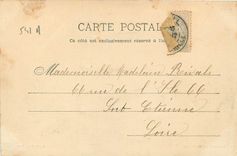 541 A
CARTE POSTALE
Ce côté est exclusivement réservé à l'adresse
Mademoiselle Madeleine Rivals
66 rue de l'Isle 66
Saint Etienne
Loire